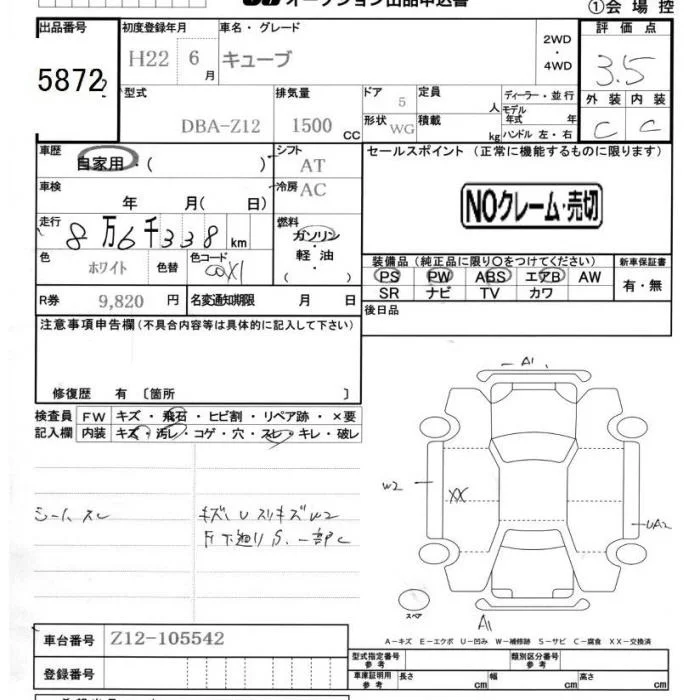 オークション出品申込書
①会場控
出品番号 初度登録年月 車名・グレード 評価点
5872 H22 6月 キューブ 2WD・4WD 3.5
型式 排気量 ドア 5 定員 人 ディーラー・並行 外装 内装
DBA-Z12 1500 CC 形状 WG 積載 kg モデル年式 年 ハンドル 左・右 C C
車歴 自家用・( ) シフト AT セールスポイント (正常に機能するものに限ります)
車検 年 月(日) 冷房 AC NOクレーム・売切
走行 8万6千338km 燃料 ガソリン・軽油・( )
色 ホワイト 色替 色コード 装備品 (純正品に限り〇をつけてください) 新車保証書
PS PW ABS エアB AW 有・無
SR ナビ TV カワ
R券 9,820 円 名変通知期限 月 日 後日品
注意事項申告欄(不具合内容等は具体的に記入して下さい)
修復歴 有 〔箇所 〕
検査員記入欄 FW キズ・飛石・ヒビ割・リペア跡・×要
内装 キズ・汚レ・コゲ・穴・スレ・キレ・破レ
シートスレ
キズ、Uスリキズ W2
下廻りS.一部C
A1
W2
XX
UA2
スペア
A1
A-キズ E-エクボ U-凹み W-補修跡 S-サビ C-腐食 XX-交換済
車台番号 Z12-105542
型式指定番号 参考 類別区分番号 参考
登録番号
車庫証明用 参考 長さ cm 幅 cm 高さ cm